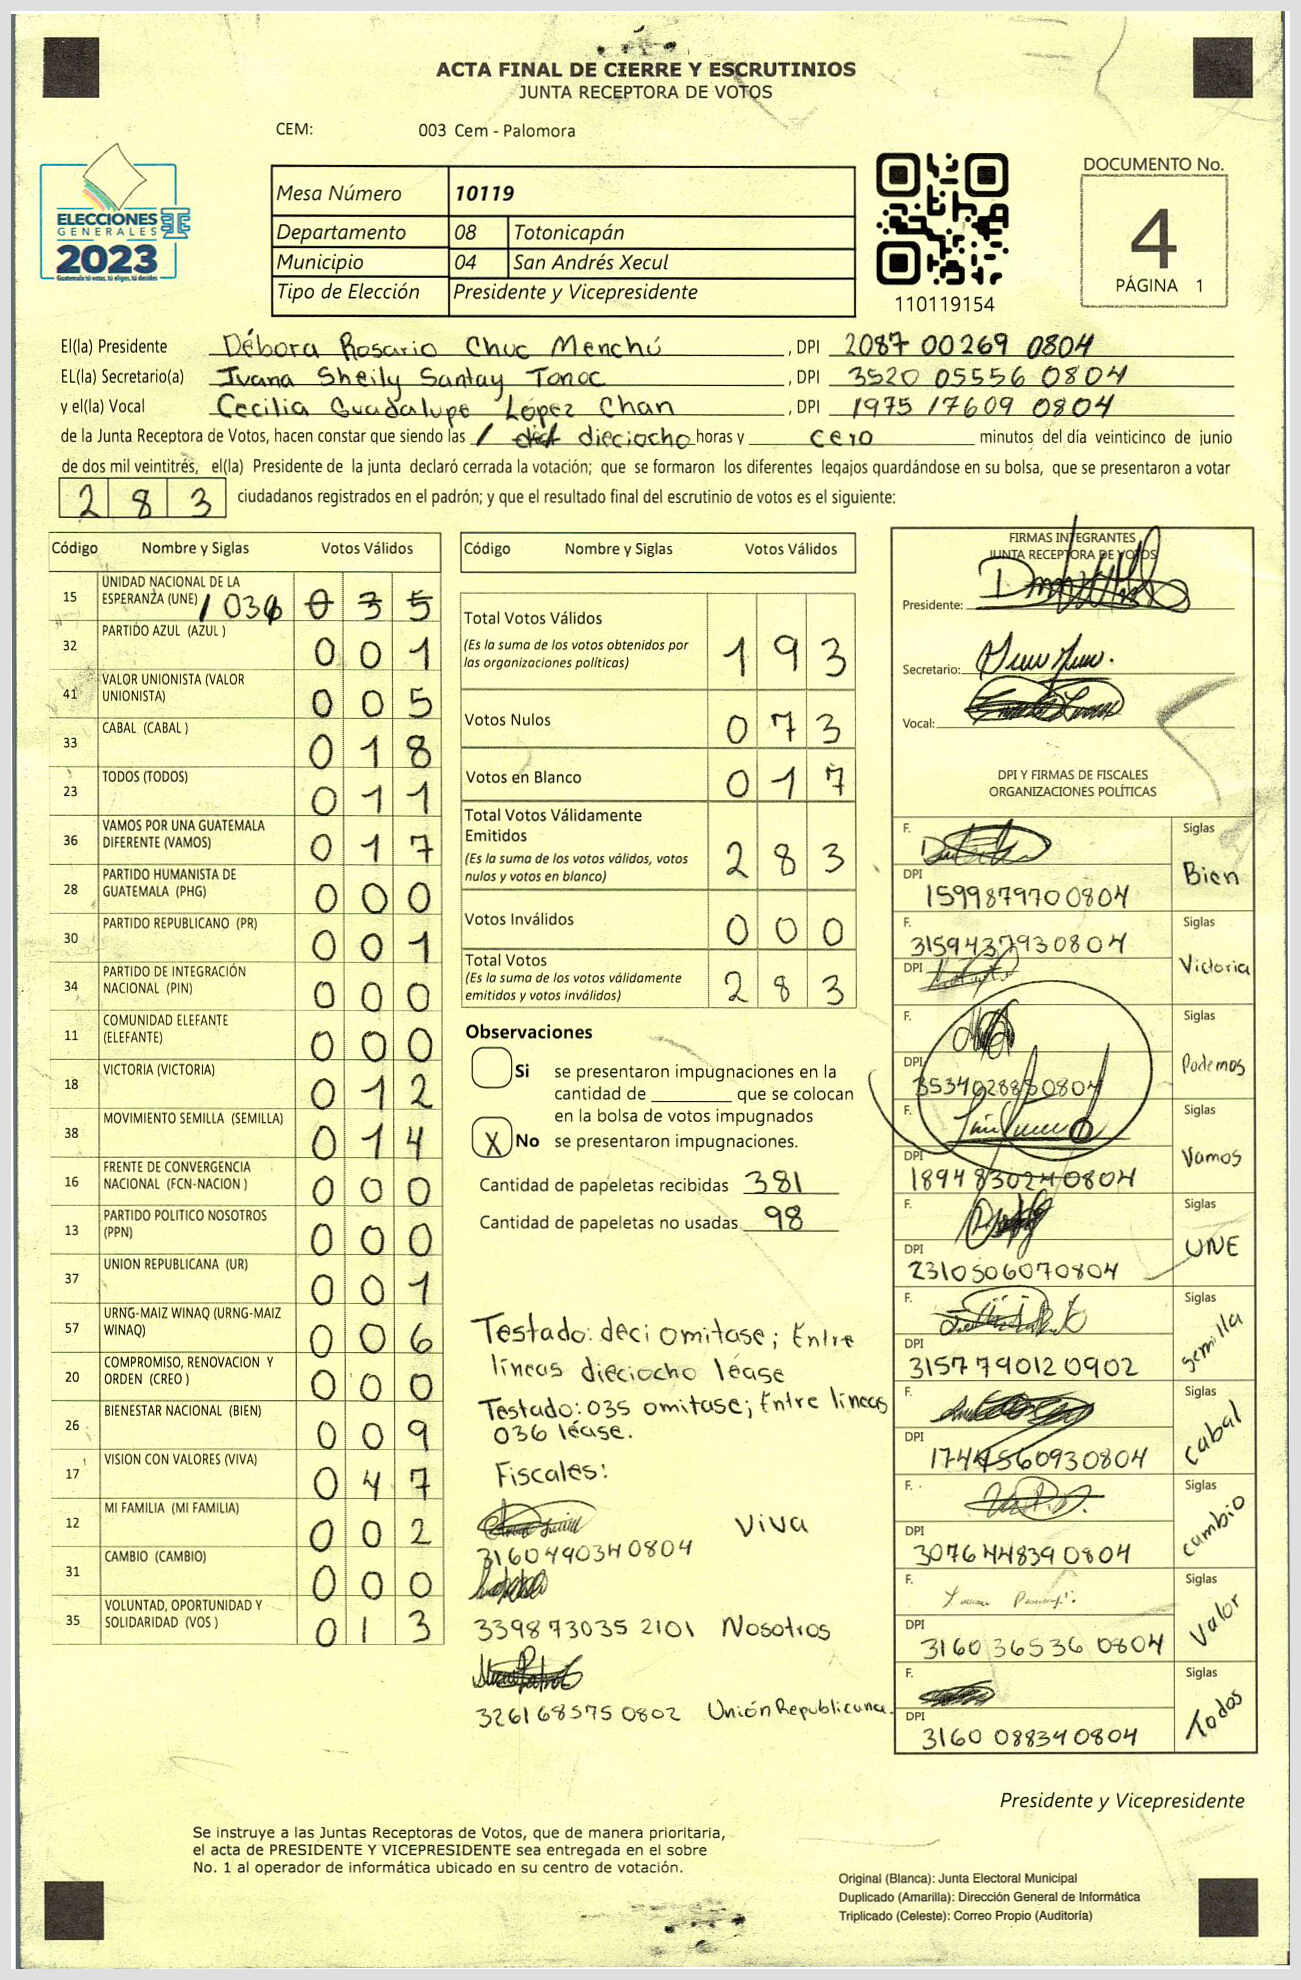 ACTA FINAL DE CIERRE Y ESCRUTINIOS
JUNTA RECEPTORA DE VOTOS
CEM: 003 Cem - Palomora
ELECCIONES
GENERALES
2023
Mesa Número 10119
Departamento 08 Totonicapán
Municipio 04 San Andrés Xecul
Tipo de Elección Presidente y Vicepresidente
110119154
DOCUMENTO No.
4
PÁGINA 1
El(la) Presidente Débora Rosario Chuc Menchú, DPI 2087 00269 0804
EL(la) Secretario(a) Ivana Sheily Santay Tonoc, DPI 3520 05556 0804
y el(la) Vocal Cecilia Guadalupe López Chan, DPI 1975 17609 0804
de la Junta Receptora de Votos, hacen constar que siendo las / dieciocho horas y cero minutos del día veinticinco de junio
de dos mil veintitrés, el(la) Presidente de la junta declaró cerrada la votación; que se formaron los diferentes legajos guardándose en su bolsa, que se presentaron a votar
283 ciudadanos registrados en el padrón; y que el resultado final del escrutinio de votos es el siguiente:
Código Nombre y Siglas Votos Válidos
15 UNIDAD NACIONAL DE LA
ESPERANZA (UNE) / 036 035
32 PARTIDO AZUL (AZUL ) 001
41 VALOR UNIONISTA (VALOR
UNIONISTA) 005
33 CABAL (CABAL ) 018
23 TODOS (TODOS) 011
36 VAMOS POR UNA GUATEMALA
DIFERENTE (VAMOS) 017
28 PARTIDO HUMANISTA DE
GUATEMALA (PHG) 000
30 PARTIDO REPUBLICANO (PR) 001
34 PARTIDO DE INTEGRACIÓN
NACIONAL (PIN) 000
11 COMUNIDAD ELEFANTE
(ELEFANTE) 000
18 VICTORIA (VICTORIA) 012
38 MOVIMIENTO SEMILLA (SEMILLA) 014
16 FRENTE DE CONVERGENCIA
NACIONAL (FCN-NACION ) 000
13 PARTIDO POLITICO NOSOTROS
(PPN) 000
37 UNION REPUBLICANA (UR) 001
57 URNG-MAIZ WINAQ (URNG-MAIZ
WINAQ) 006
20 COMPROMISO, RENOVACION Y
ORDEN (CREO ) 000
26 BIENESTAR NACIONAL (BIEN) 009
17 VISION CON VALORES (VIVA) 047
12 MI FAMILIA (MI FAMILIA) 002
31 CAMBIO (CAMBIO) 000
35 VOLUNTAD, OPORTUNIDAD Y
SOLIDARIDAD (VOS ) 013
Código Nombre y Siglas Votos Válidos
Total Votos Válidos
(Es la suma de los votos obtenidos por
las organizaciones políticas) 193
Votos Nulos 073
Votos en Blanco 017
Total Votos Válidamente
Emitidos
(Es la suma de los votos válidos, votos
nulos y votos en blanco) 283
Votos Inválidos 000
Total Votos
(Es la suma de los votos válidamente
emitidos y votos inválidos) 283
Observaciones
Si se presentaron impugnaciones en la
cantidad de ________ que se colocan
en la bolsa de votos impugnados
X No se presentaron impugnaciones.
Cantidad de papeletas recibidas 381
Cantidad de papeletas no usadas 98
Testado: deci omitase; Entre
líneas dieciocho léase
Testado: 035 omitase; Entre líneas
036 léase.
Fiscales:
Viva
3160490340804
339873035 2101 Nosotros
326168575 0802 Unión Republicana.
FIRMAS INTEGRANTES
JUNTA RECEPTORA DE VOTOS
Presidente:
Secretario:
Vocal:
DPI Y FIRMAS DE FISCALES
ORGANIZACIONES POLÍTICAS
F. Siglas
DPI Bien
1599879700804
F. Siglas
3159437930804
DPI Victoria
F. Siglas
DPI Podemos
3534028850804
F. Siglas
DPI Vamos
1894830240804
F. Siglas
DPI UNE
2310506070804
F. Siglas
DPI semilla
3157790120902
F. Siglas
DPI cabal
1744560930804
F. Siglas
DPI cambio
3076448390804
F. Siglas
DPI Valor
3160365360804
F. Siglas
DPI Todos
3160088340804
Presidente y Vicepresidente
Se instruye a las Juntas Receptoras de Votos, que de manera prioritaria,
el acta de PRESIDENTE Y VICEPRESIDENTE sea entregada en el sobre
No. 1 al operador de informática ubicado en su centro de votación.
Original (Blanca): Junta Electoral Municipal
Duplicado (Amarilla): Dirección General de Informática
Triplicado (Celeste): Correo Propio (Auditoría)